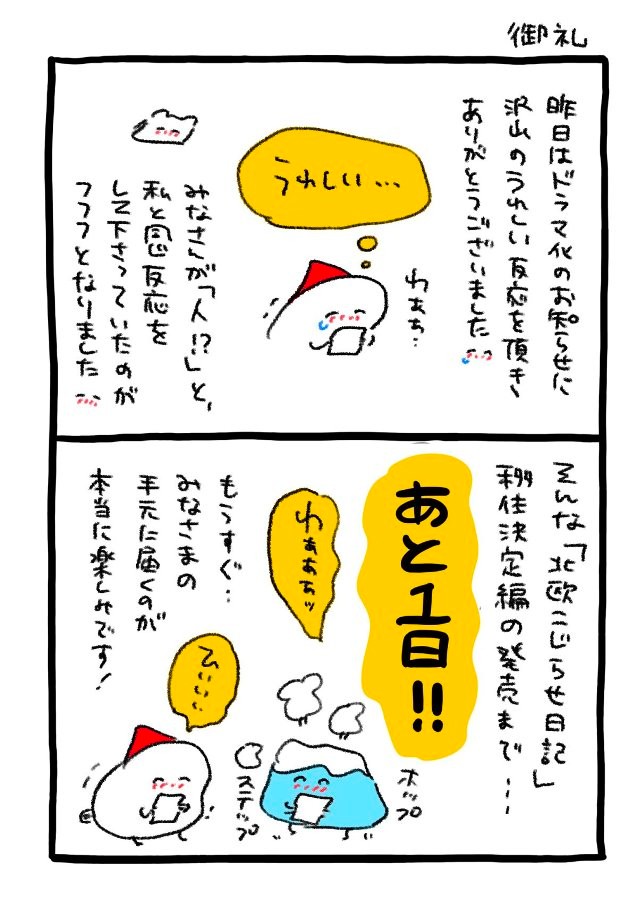 御礼
昨日はドラマ化のお知らせに
沢山のうれしい反応を頂き
ありがとうございました
わぁぁ…
うれしい…
みなさんが「人!?」と、
私と同じ反応を
して下さっていたのが
フフフとなりました
そんな「北欧こじらせ日記」
移住決定編の発売まで…
あと1日!!
ホップ
わぁぁぁッ
ステップ
ひぃぃぃ
もうすぐ…
みなさまの
手元に届くのが
本当に楽しみです!